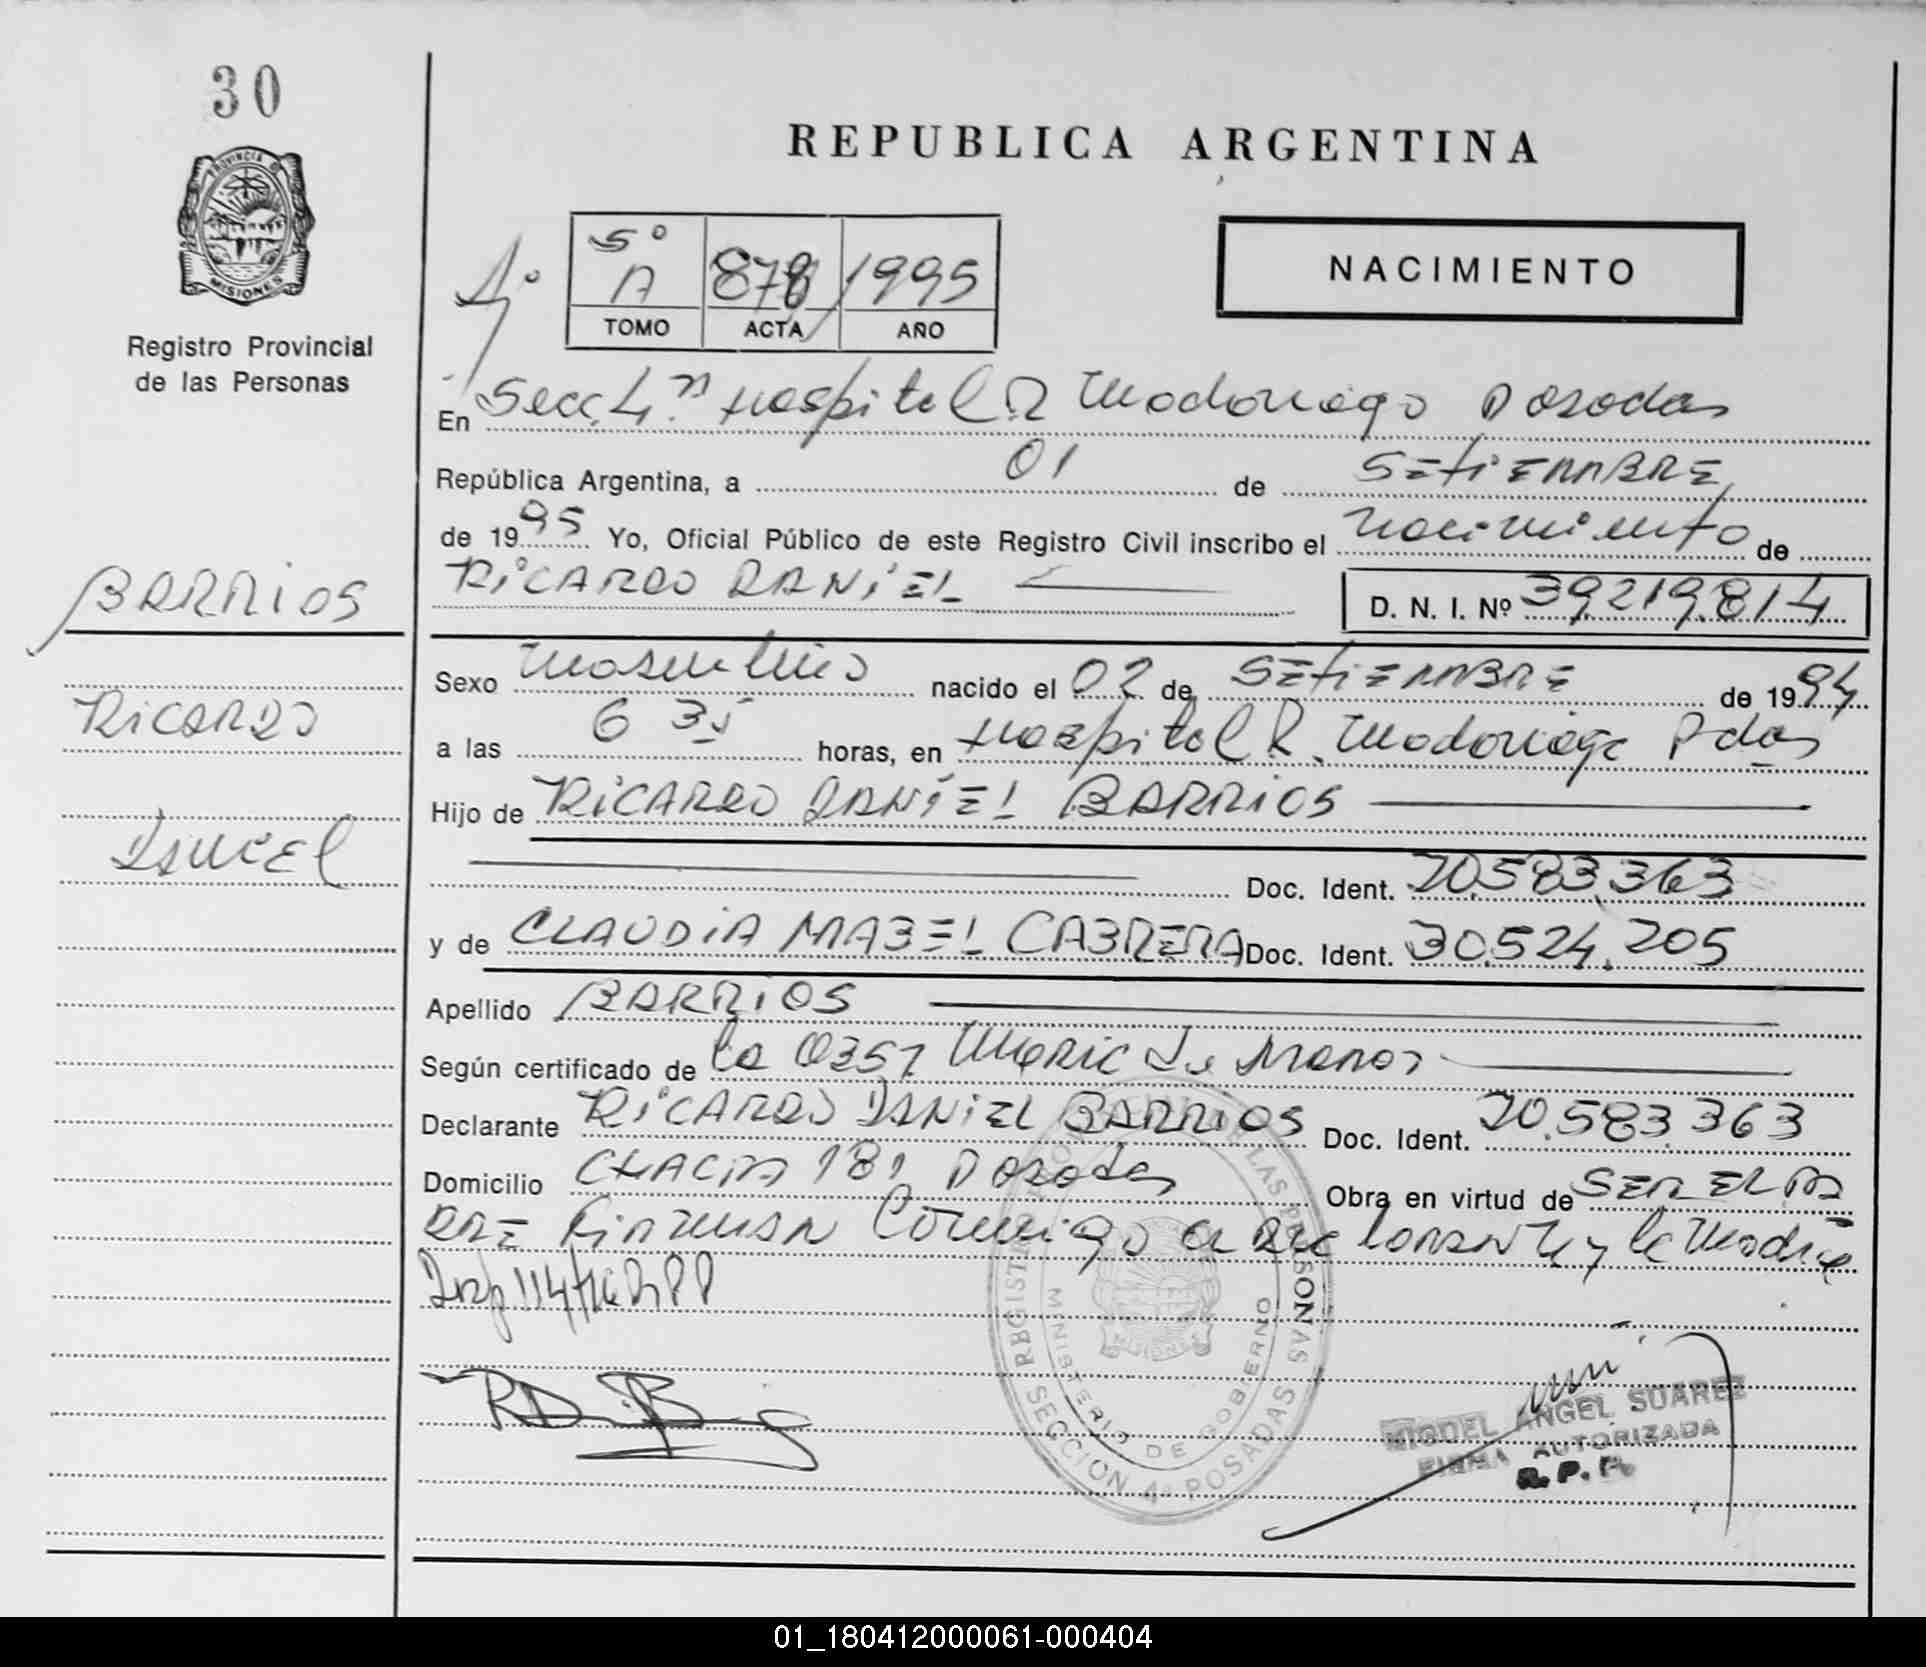 30
PROVINCIA DE
MISIONES
Registro Provincial
de las Personas
BARRIOS
RICARDO
DANIEL
REPUBLICA ARGENTINA
NACIMIENTO
5º
A 878 1995
TOMO ACTA AÑO
En Secc 4ª Hospital R Madariaga Posadas
República Argentina, a 01 de SETIEMBRE
de 1995 Yo, Oficial Público de este Registro Civil inscribo el nacimiento de
RICARDO DANIEL
D. N. I. Nº 39.219.814
Sexo masculino nacido el 02 de SETIEMBRE de 1994
a las 6 35 horas, en Hospital R. Madariaga Pdas
Hijo de RICARDO DANIEL BARRIOS
Doc. Ident. 20.583.363
y de CLAUDIA MABEL CABRERA Doc. Ident. 30.524.205
Apellido BARRIOS
Según certificado de la
Declarante RICARDO DANIEL BARRIOS Doc. Ident. 20.583.363
Domicilio CHACRA 181 Posadas Obra en virtud de SER EL PA
DRE FIRMAN Conmigo el Declarante y la Madre
REGISTRO PROVINCIAL DE LAS PERSONAS
MINISTERIO DE GOBIERNO
SECCION 4ª POSADAS
MIGUEL ANGEL SUAREZ
FIRMA AUTORIZADA
R. P. P.
01_180412000061-000404